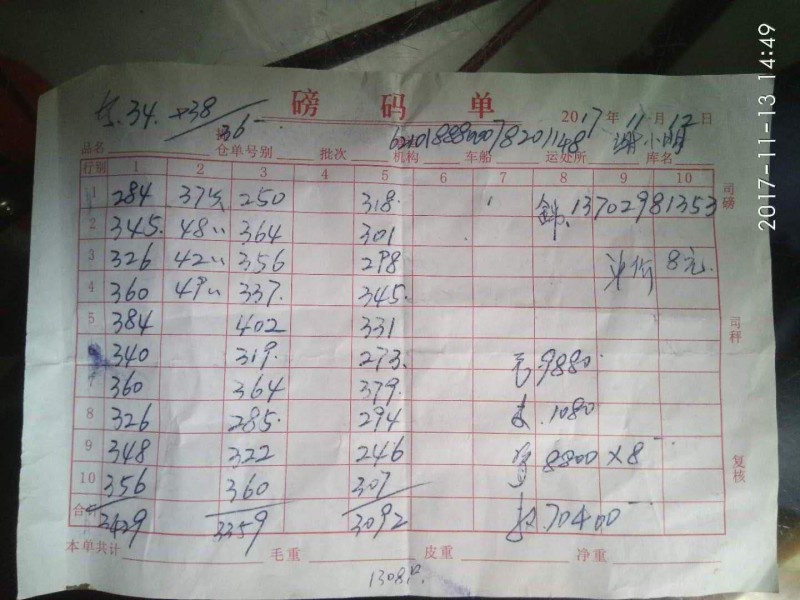 2017-11-13 14:49
34. 38
磅 码 单
36
2017年11月12日
6210188800078201148 谢小明
品名 仓单号别 批次 机构 车船 运处所 库名
行别 1 2 3 4 5 6 7 8 9 10 司磅
1 284 37 250 318. 13702981353
2 345. 48 364 301
3 326 42 356 298 单价 8元.
4 360 49 337. 345.
5 384 402 331 司秤
340 319. 273. 毛.9880.
7 360 364 379.
8 326 285. 294 .1080
9 348 322 246 8800×8 复核
10 356 360 307
合计 3429 3259 3092 .70400
本单共计 毛重 皮重 净重